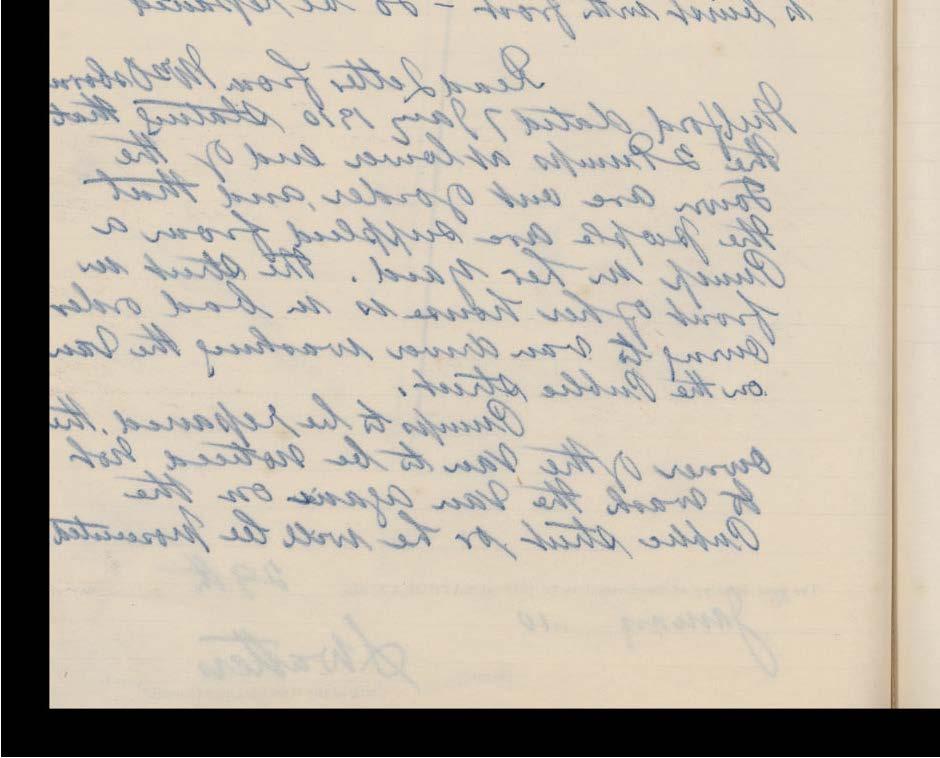 to limit with frost – To be repaired
Read Letter from Mrs Osborn
Milford dated 7 Jany 1910 stating that
the 2 Pumps at lower end of the
town are out of order, and that
the people are supplied from a
Pump in her Yard. The Street in
front of her house is in bad order
owing to van driver washing the Van
on the Public Street.
Pumps to be repaired, the
owner of the Van to be noticed not
to wash the Van again on the
Public Street or he will be prosecuted
29th
January 10